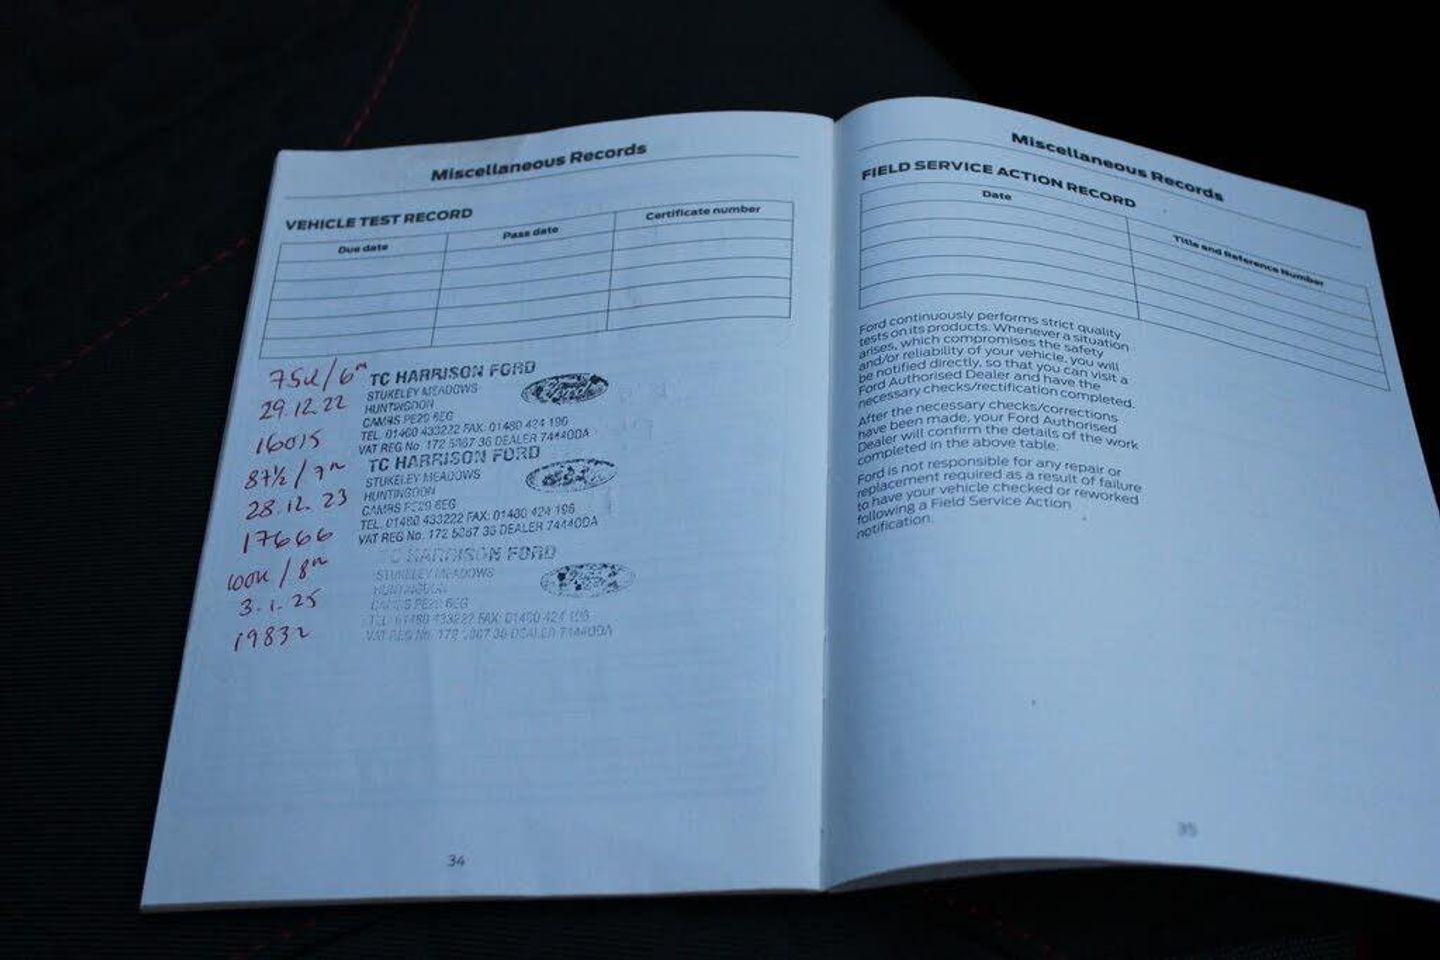 Miscellaneous Records
VEHICLE TEST RECORD
Due date
Pass date
Certificate number
75k/6th
29.12.22
16015
TC HARRISON FORD
STUKELEY MEADOWS
HUNTINGDON
CAMBS PE29 6EG
TEL. 01480 433222 FAX: 01480 424 196
VAT REG No. 172 5067 36 DEALER 74440DA
Ford
87½/7th
28.12.23
17666
TC HARRISON FORD
STUKELEY MEADOWS
HUNTINGDON
CAMBS PE29 6EG
TEL. 01480 433222 FAX: 01480 424 196
VAT REG No. 172 5067 36 DEALER 74440DA
100k/8th
3.1.25
19832
TC HARRISON FORD
STUKELEY MEADOWS
HUNTINGDON
CAMBS PE29 6EG
TEL. 01480 433222 FAX: 01480 424 196
VAT REG No. 172 5067 36 DEALER 74440DA
34
Miscellaneous Records
FIELD SERVICE ACTION RECORD
Date
Title and Reference Number
Ford continuously performs strict quality
tests on its products. Whenever a situation
arises, which compromises the safety
and/or reliability of your vehicle, you will
be notified directly, so that you can visit a
Ford Authorised Dealer and have the
necessary checks/rectification completed.
After the necessary checks/corrections
have been made, your Ford Authorised
Dealer will confirm the details of the work
completed in the above table.
Ford is not responsible for any repair or
replacement required as a result of failure
to have your vehicle checked or reworked
following a Field Service Action
notification.
35